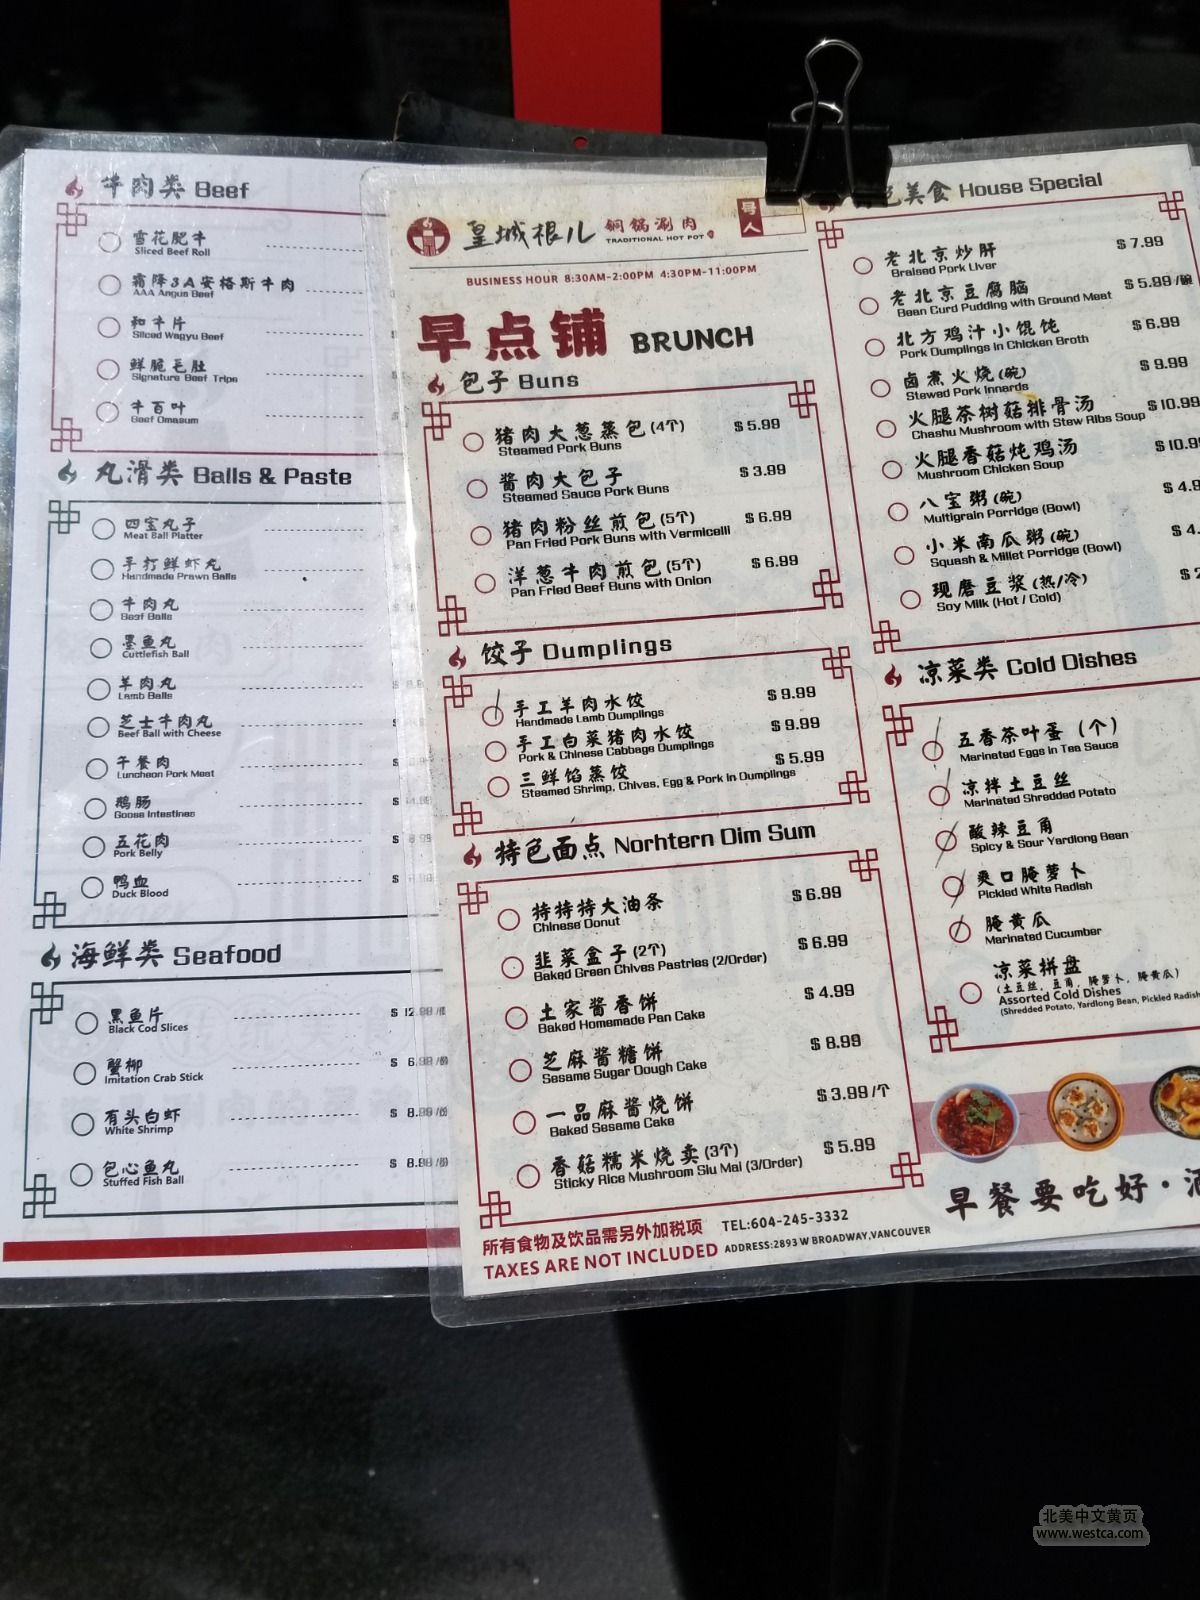 牛肉类 Beef
雪花肥牛
Sliced Beef Roll
霜降3A安格斯牛肉
AAA Angus Beef
和牛片
Sliced Wagyu Beef
鲜脆毛肚
Signature Beef Tripe
牛百叶
Beef Omasum
丸滑类 Balls & Paste
四宝丸子
Meat Ball Platter
手打鲜虾丸
Handmade Prawn Balls
牛肉丸
Beef Balls
墨鱼丸
Cuttlefish Ball
羊肉丸
Lamb Balls
芝士牛肉丸
Beef Ball with Cheese
午餐肉
Luncheon Pork Meat
鹅肠
Goose Intestines
五花肉
Pork Belly
鸭血
Duck Blood
海鲜类 Seafood
黑鱼片 $ 12.99
Black Cod Slices
蟹柳 $ 6.99 /份
Imitation Crab Stick
有头白虾 $ 8.99 /份
White Shrimp
包心鱼丸 $ 8.99 /份
Stuffed Fish Ball
皇城根儿 铜锅涮肉
TRADITIONAL HOT POT
号
人
BUSINESS HOUR 8:30AM-2:00PM 4:30PM-11:00PM
早点铺 BRUNCH
包子 Buns
猪肉大葱蒸包(4个) $ 5.99
Steamed Pork Buns
酱肉大包子 $ 3.99
Steamed Sauce Pork Buns
猪肉粉丝煎包(5个) $ 6.99
Pan Fried Pork Buns with Vermicelli
洋葱牛肉煎包(5个) $ 6.99
Pan Fried Beef Buns with Onion
饺子 Dumplings
手工羊肉水饺 $ 9.99
Handmade Lamb Dumplings
手工白菜猪肉水饺 $ 9.99
Pork & Chinese Cabbage Dumplings
三鲜馅蒸饺 $ 5.99
Steamed Shrimp, Chives, Egg & Pork in Dumplings
特色面点 Norhtern Dim Sum
特特特大油条 $ 6.99
Chinese Donut
韭菜盒子(2个) $ 6.99
Baked Green Chives Pastries (2/Order)
土家酱香饼 $ 4.99
Baked Homemade Pan Cake
芝麻酱糖饼 $ 8.99
Sesame Sugar Dough Cake
一品麻酱烧饼 $ 3.99 /个
Baked Sesame Cake
香菇糯米烧卖(3个) $ 5.99
Sticky Rice Mushroom Siu Mai (3/Order)
所有食物及饮品需另外加税项 TEL:604-245-3332
TAXES ARE NOT INCLUDED ADDRESS:2893 W BROADWAY,VANCOUVER
色美食 House Special
老北京炒肝 $ 7.99
Braised Pork Liver
老北京豆腐脑 $ 5.99 /碗
Bean Curd Pudding with Ground Meat
北方鸡汁小馄饨 $ 6.99
Pork Dumplings in Chicken Broth
卤煮火烧(碗) $ 9.99
Stewed Pork Innards
火腿茶树菇排骨汤 $ 10.99
Chashu Mushroom with Stew Ribs Soup
火腿香菇炖鸡汤 $ 10.9
Mushroom Chicken Soup
八宝粥(碗) $ 4.9
Multigrain Porridge (Bowl)
小米南瓜粥(碗) $ 4.
Squash & Millet Porridge (Bowl)
现磨豆浆(热/冷) $ 2
Soy Milk (Hot / Cold)
凉菜类 Cold Dishes
五香茶叶蛋(个)
Marinated Eggs in Tea Sauce
凉拌土豆丝
Marinated Shredded Potato
酸辣豆角
Spicy & Sour Yardlong Bean
爽口腌萝卜
Pickled White Radish
腌黄瓜
Marinated Cucumber
凉菜拼盘
(土豆丝, 豆角, 腌萝卜, 腌黄瓜)
Assorted Cold Dishes
(Shredded Potato, Yardlong Bean, Pickled Radish
早餐要吃好·
北美中文黄页
www.westca.com